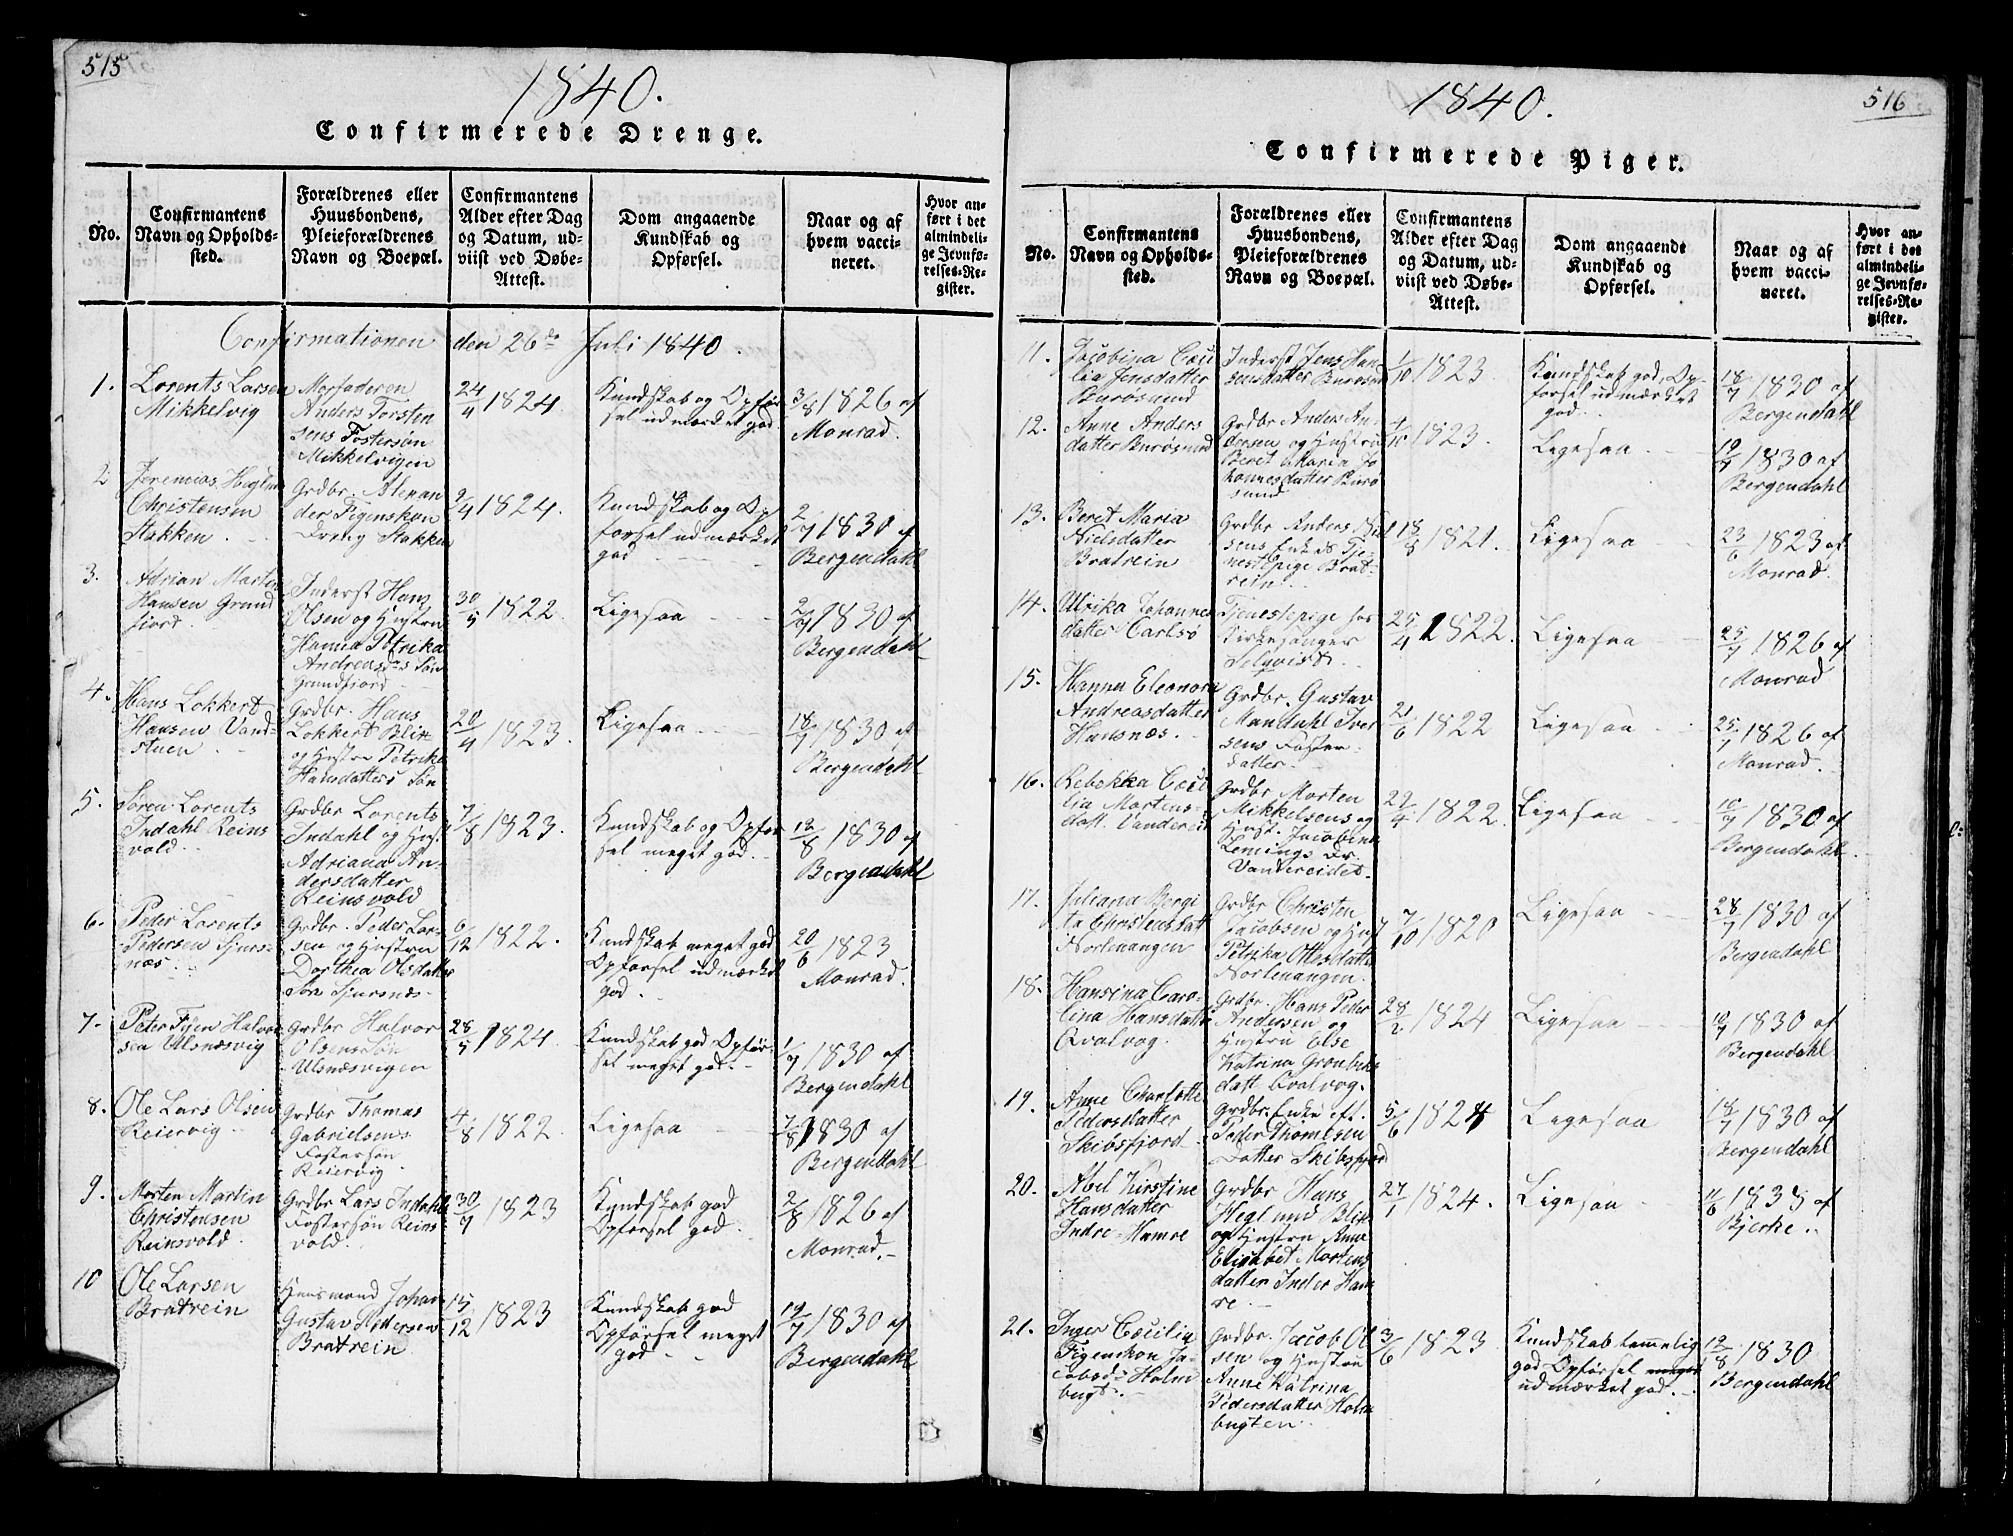 515
1840.
Confirmerede Drenge.
No.
Confirmantens
Navn og Opholds-
sted.
Forældrenes eller
Huusbondens,
Pleieforældrenes
Navn og Boepæl.
Confirmantens
Alder efter Dag
og Datum, ud-
viist ved Døbe-
Attest.
Dom angaaende
Kundskab og
Opførsel.
Naar og af
hvem vacci-
neret.
Hvor an-
ført i det
almindeli-
ge Jevnfø-
relses-Re-
gister.
Confirmationen den 26de Juli 1840.
1.
Lorents Larsen
Mikkelvig
Morfaderen
Anders Torsten
sens Fostersøn
Mikkelvigen
24/4 1824
Kundskab og Opfør
sel udmærket god
3/8 1826 af
Monrad.
2
Jeremias
Christensen
Stakken.
Grdbr. Alexan
der Figenskou
Dreng Stakken
9/4 1824.
Kundskab og Op
førsel udmærket
god
2/7 1830 af
Bergendahl
3.
Adrian Martin
Hansen Grund
fjord.
Inderst Hans
Olsen og Hustru
Hanna Petrika
Andreasds Søn
Grundfjord
30/5 1822
Ligesaa
2/7 1830 af
Bergendahl
4.
Hans Lokkert
Hansen Vand-
stuen
Grdbr. Hans
Lokkert Blix
og Hustru Petrike
Hansdatters Søn
20/4 1823.
Ligesaa
18/7 1830 af
Bergendahl
5.
Søren Lorents
Indahl Reins
vold.
Grdbr Lorents
Indahl og Hus.
Adriana An-
dersdatter
Reinsvold
7/8 1823.
Kundskab og Opfør
sel meget god.
12/8 1830 af
Bergendahl
6.
Peder Lorents
Pedersen Sjurs-
næs.
Grdbr. Peder Lar-
sen og Hustru
Dorthea Olsdatter
Søn Sjursnæs.
6/12 1822.
Kundskab meget god
Opførsel udmærket
god
20/6 1823
Monrad.
7.
Peter Fyen Halvor
sen Ulsnæsvig
Grdbr Halvor
Olsens Søn
Ulsnæsvigen
28/5 1824
Kundskab god Opfør-
sel meget god.
1/7 1830 af
Bergendahl
8.
Ole Lars Olsen
Reiervig
Grdbr Thomas
Gabrielsens
Fostersøn
Reiervig
4/8 1822
Ligesaa
7/8 1830 af
Bergendahl
9.
Morten Martin
Christensen
Reinsvold
Grdbr Lars Indahls
Fostersøn Reins-
vold.
30/7 1823
Kundskab god
Opførsel god.
2/8 1826 af
Monrad.
10
Ole Larsen
Bratrein
Huusmand Johan
Gustav
Bratrein
15/12 1823
Kundskab god
Opførsel meget
god
19/7 1830 af
Bergendahl
516
1840.
Confirmerede Piger.
No.
Confirmantens
Navn og Opholds-
sted.
Forældrenes eller
Huusbondens,
Pleieforældrenes
Navn og Boepæl.
Confirmantens
Alder efter Dag
og Datum, ud-
viist ved Døbe-
Attest.
Dom angaaende
Kundskab og
Opførsel.
Naar og af
hvem vacci-
neret.
Hvor an-
ført i det
almindeli-
ge Jevnfø-
relses-Re-
gister.
11.
Jacobina Cæci
lia Jensdatter
Burøsund
Inderst Jens Han
sens datter Burøsund
1/10 1823.
Kundskab god, Op-
førsel udmærket
god.
18/7 1830 af
Bergendahl
12.
Anne Anders
datter Burøsund
Grdbr Anders An
dersen og Hustru
Beret Maria Jo
hannesdatter Burø
sund
4/10 1823.
Ligesaa
19/7 1830 af
Bergendahl
13.
Beret Maria
Nielsdatter
Bratrein
Grdbr Anders
sens Enkes Tje-
nestepige Brat-
rein
18/8 1821.
Ligesaa
23/6 1823 af
Monrad.
14.
Ulrika Johannes
datter Carlsø
Tjenestepige hos
Kirkesanger
Selqvist
25/4 1822.
Ligesaa
25/7 1826 af
Monrad
15.
Hanna Eleonora
Andreasdatter
Hansnæs.
Grdbr. Gustav
Mandahl Iver
sens Foster-
datter.
21/6 1822
Ligesaa
25/7 1826 af
Monrad.
16.
Rebekka Cæci
lia Mortens-
datt. Vandereid
Grdbr Morten
Mikkelsens og
Hust. Jacobine
Lemings Dr.
Vandereidet.
29/4 1822.
Ligesaa
10/7 1830 af
Bergendahl.
17.
Juliana Bergi
te Christensdatt
Nortenangen
Grdbr Christen
Jacobsen og Hust
Petrika Ottesdatter
Nortenangen.
7/10 1820
Ligesaa
28/7 1830 af
Bergendahl
18.
Hansina Caro-
lina Hansdatter
Qvalvog.
Grdbr. Hans Peder
Andersen og
Hustru Else
Katrina Grønbeks
datt Qvalvog.
28/2 1824
Ligesaa
10/7 1830 af
Bergendahl
19.
Anne Charlotte
Pedersdatter
Skibsfjord
Grdbr. Enke eft.
Peder Thomesen
Datter Skibsfjord
5/6 1824
Ligesaa
18/7 1830 af
Bergendahl
20.
Abel Kirstine
Hansdatter
Indre-Hamre
Grdbr Hans
Heglund Blix
og Hustru Anne
Elisabet Mortens
datter Inder Ham
re.
27/1 1824.
Ligesaa
11/6 1835 af
Bjerke.
21.
Inger Cæcilia
Figenskou Ja-
cobsd. Holm
bugt.
Grdbr. Jacob Ol
sen og Hustru
Anne Katrina
Pedersdatter Holm
bugten.
3/6 1823
Kundskab temmelig
god Opførsel meget
udmærket god.
12/8 1830
Bergendahl